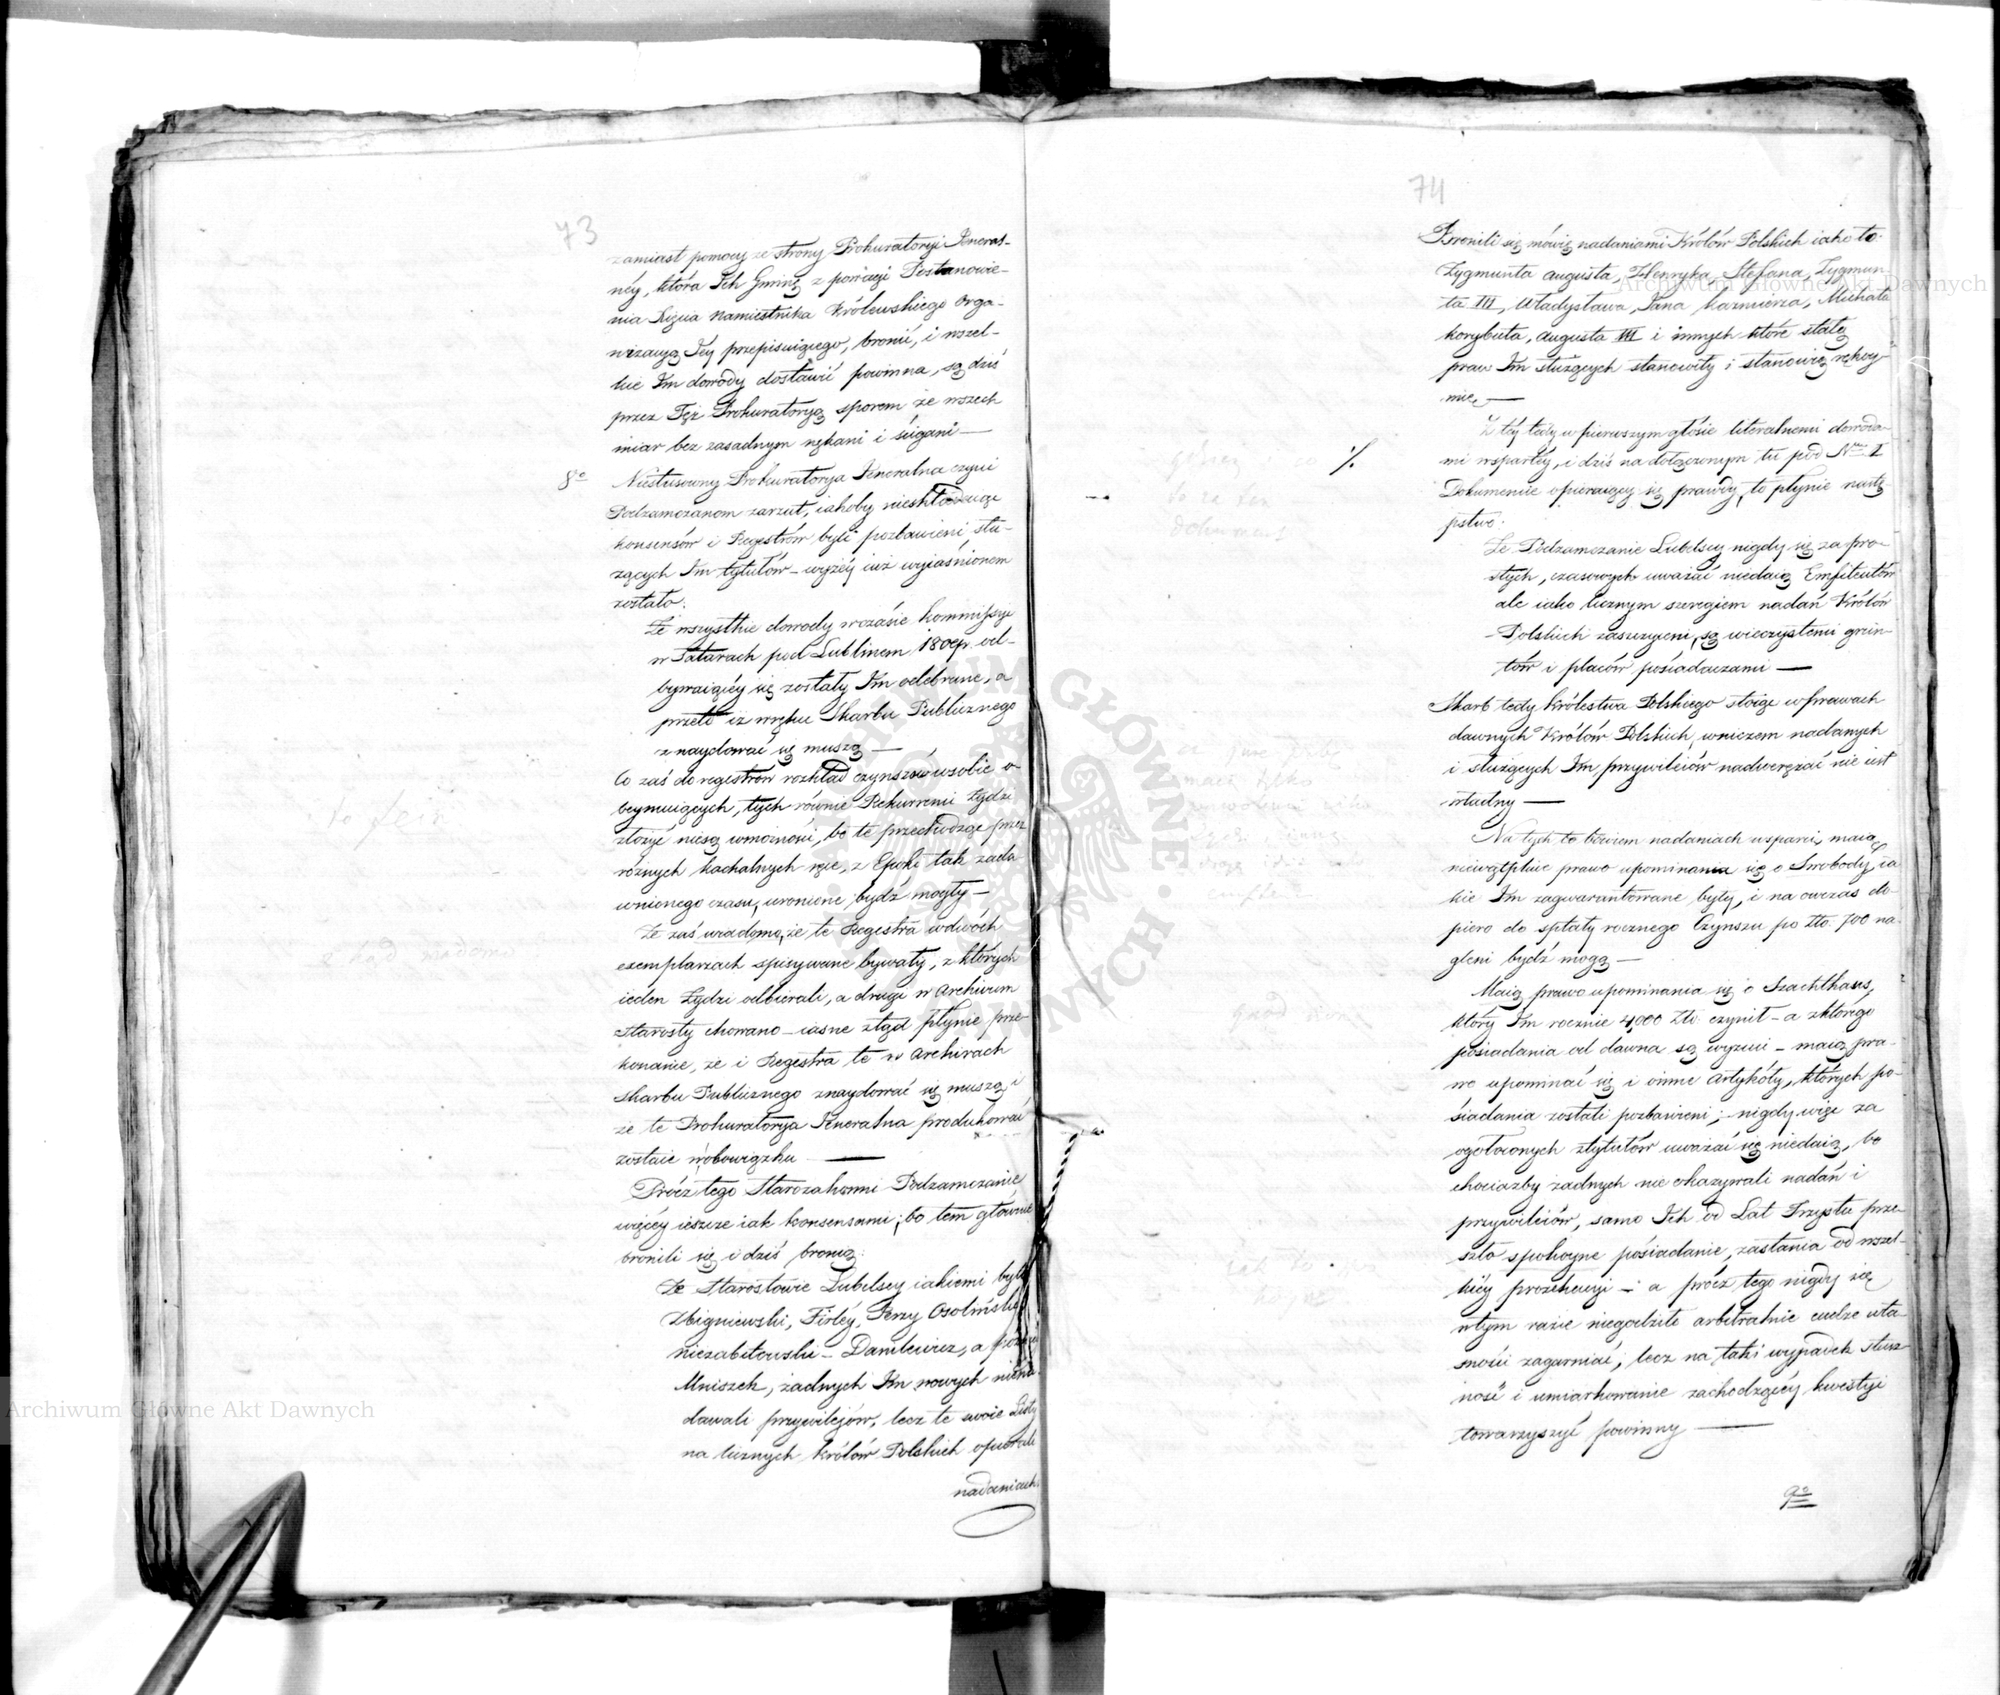 73
zamiast pomocy ze strony Prokuratoryi Jeneral-
néy, która Ich Gminę z powagi Postanowie-
nia Xięcia Namiestnika Królewskiego orga-
nizacyą Jéy przepisuiącego, bronić, i wszel-
kie Im dowody dostawić powinna, są dziś
przez Tęż Prokuratoryą sporem ze wszech
miar bez zasadnym nękani i ścigani —
8o Niestusowny Prokuratorya Jeneralna czyni
Podzamczanom zarzut, iakoby nieskładaiąc
konsensów i Regestrów byli pozbawieni słu-
żących Im tytułów – wyżéy iuż wyiaśnionem
zostało.
Że wszystkie dowody w czasie kommissyi
w Tatarach pod Lublinem od-
bywaiącéy się zostały Im odebrane, a
przeto iż w ręku Skarbu Publicznego
znaydować się muszą —
Co zaś do regestrów rozkład czynszów w sobie o-
beymuiących, tych równie Rekurrenci Żydzi
złożyć niesą w możności, bo te przechodząc przez
różnych kachalnych ręce, z Epoki tak zada-
wnionego czasu, uronione bydź mogły –
Że zaś wiadomo, że te Regestra w dwóch
exemplarzach spisywane bywały, z których
ieden Żydzi odbierali, a drugi w Archiwum
Starosty chowano – iasne ztąd płynie prze-
konanie, że i Regestra te w Archiwach
Skarbu Publicznego znaydować się muszą i
że te Prokuratorya Jeneralna produkować
zostaie w obowiązku —
Prócz tego Starozakonni Podzamczanie
więcéy ieszcze iak konsensami; bo tem głównie
bronili się i dziś bronią:
Że Starostowie Lubelscy iakiemi byli
Zbigniewski, Firléy, Jerzy Osoliński
Niezabitowski – Daniłowicz, a
Mniszek, żadnych Im nowych
dawali przywilejów, lecz te swoie Listy
na licznych Królów Polskich opierali
nadaniach.
74
Bronili się mówią nadaniami Królów Polskich iako to:
Zygmunta Augusta, Henryka, Stefana, Zygmun-
ta III, Władysława, Jana Kazmierza, Michała
Korybuta, Augusta III i innych które stałą
praw Im służących stanowiły i stanowią rękoy-
mię —
Z téy tedy w pierwszym głosie literalnemi dowoda-
mi wspartéy, i dziś na dołączonym tu pod Nrem I
Dokumencie opieraiącéy się prawdy, to płynie nastę-
pstwo:
Że Podzamczanie Lubelscy nigdy się za pro-
stych, czasowych uważać niedaią Emfiteutów
ale iako licznym szeregiem nadań Królów
Polskich zaszczyceni, są wieczystemi grun-
tów i placów posiadaczami —
Skarb tedy Królestwa Polskiego stoiąc w prawach
dawnych Królów Polskich, w niczem nadanych
i służących Im przywileiów nadwerężać nie iest
władny —
Na tych to bowiem nadaniach wsparci, maią
niewątpliwe prawo upominania się o Swobody, ia-
kie Im zagwarantowane były, i na owczas do-
piero do spłaty rocznego Czynszu po Złp. 700 na-
gleni bydź mogą —
Maią prawo upominania się o Szachthaus,
który Im rocznie 4,000 Złp. czynił – a z którego
posiadania od dawna są wyzuci – maią pra-
wo upominać się i o inne Artykóły, których po-
siadania zostali pozbawieni; – nigdy więc za
ogołoconych z tytułów uważać się niedaią, bo
chociażby żadnych nie okazywali nadań i
przywileiów, samo Ich od Lat Trzystu prze-
szło spokoyne posiadanie, zasłania od wszel-
kiéy prozekucyi – a prócz tego nigdy się
w tym razie niegodziło arbitralnie cudze wła-
sności zagarniać; lecz na taki wypadek słusz-
ność i umiarkowanie zachodzącéy kwestyi
towarzyszyć powinny —
9o
Archiwum Główne Akt Dawnych
Archiwum Główne Akt Dawnych